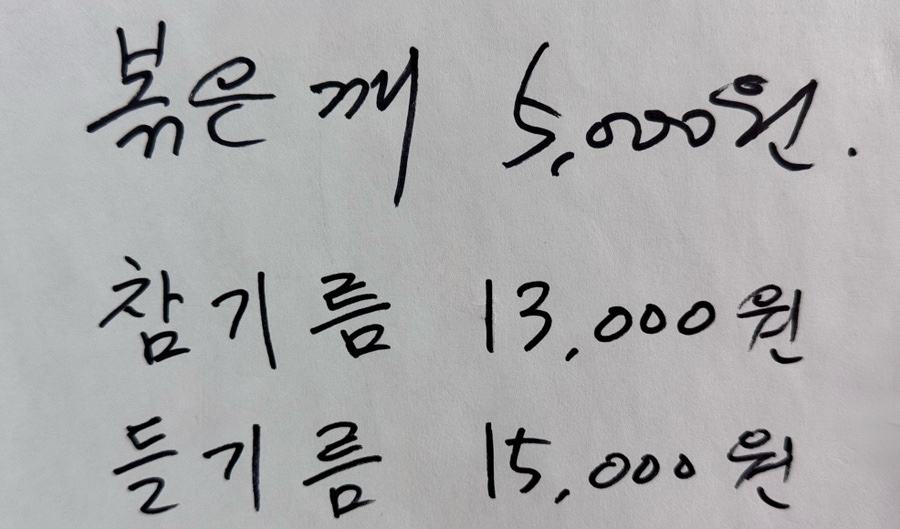 볶은 깨 5,000원.
참기름 13,000원
들기름 15,000원